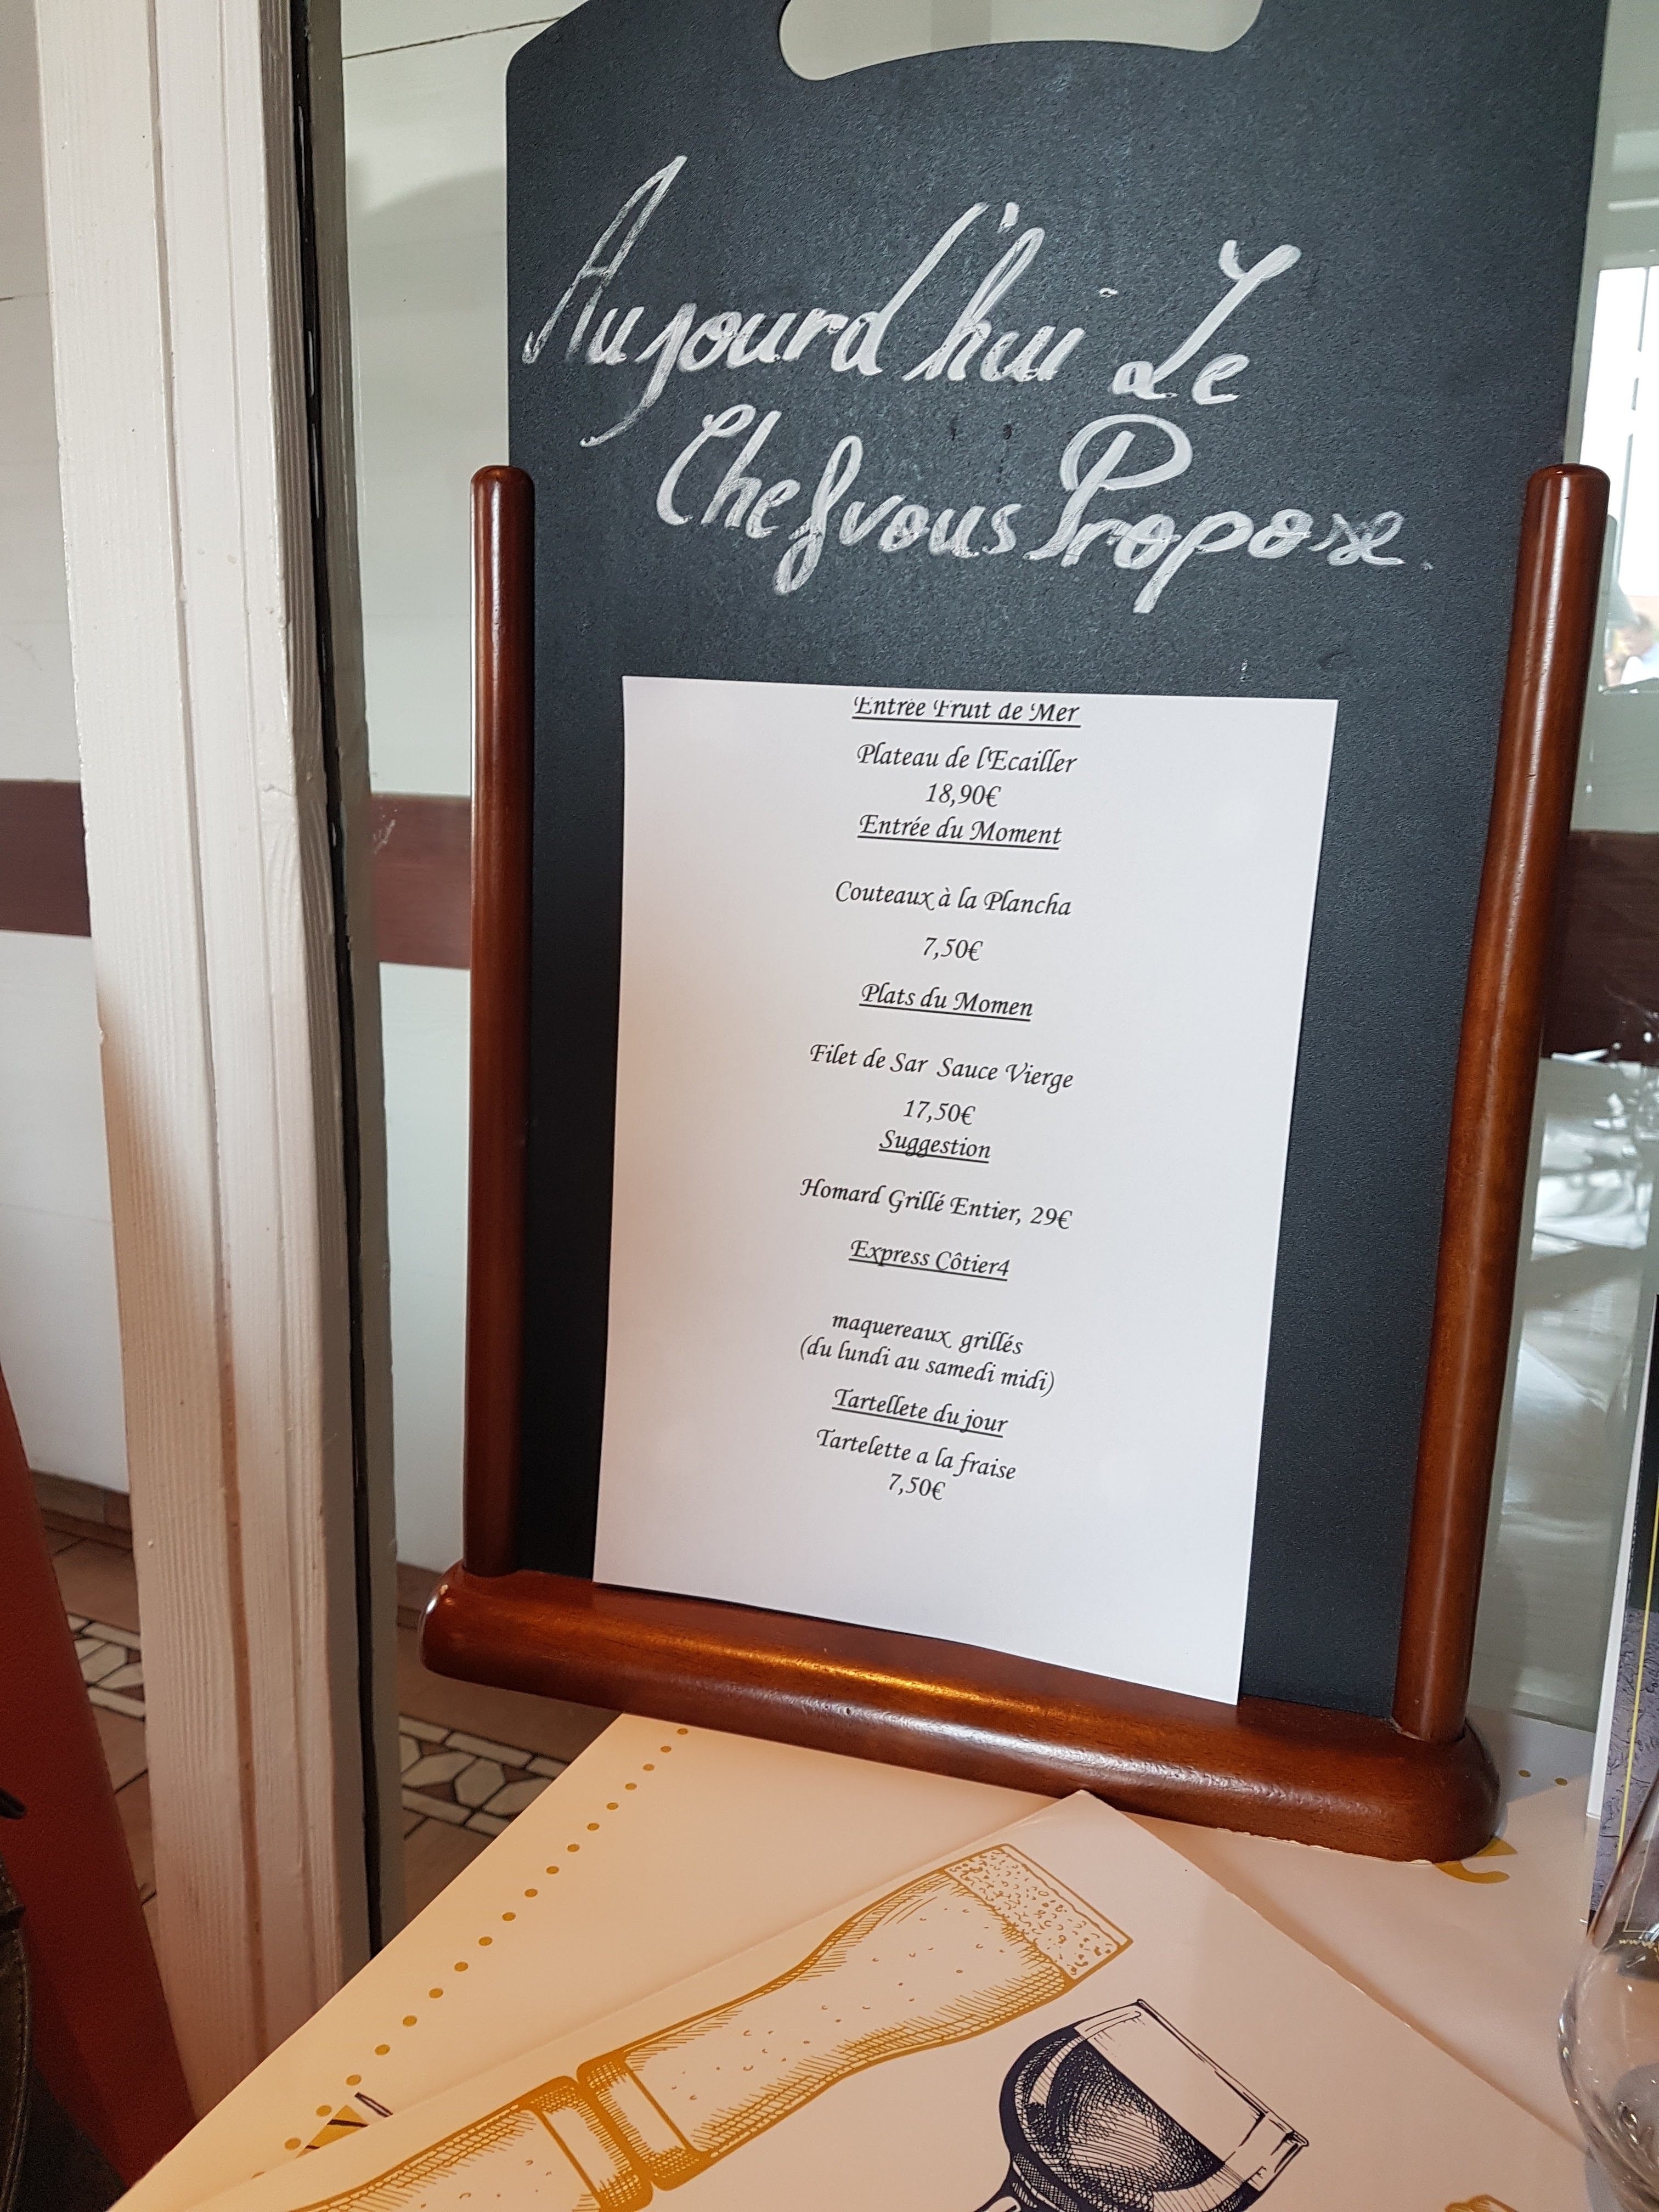 Aujourd'hui Le
Chef vous Propose.
Entrée Fruit de Mer
Plateau de l'Ecailler
18,90€
Entrée du Moment
Couteaux à la Plancha
7,50€
Plats du Momen
Filet de Sar Sauce Vierge
17,50€
Suggestion
Homard Grillé Entier, 29€
Express Côtier4
maquereaux grillés
(du lundi au samedi midi)
Tartellete du jour
Tartelette a la fraise
7,50€